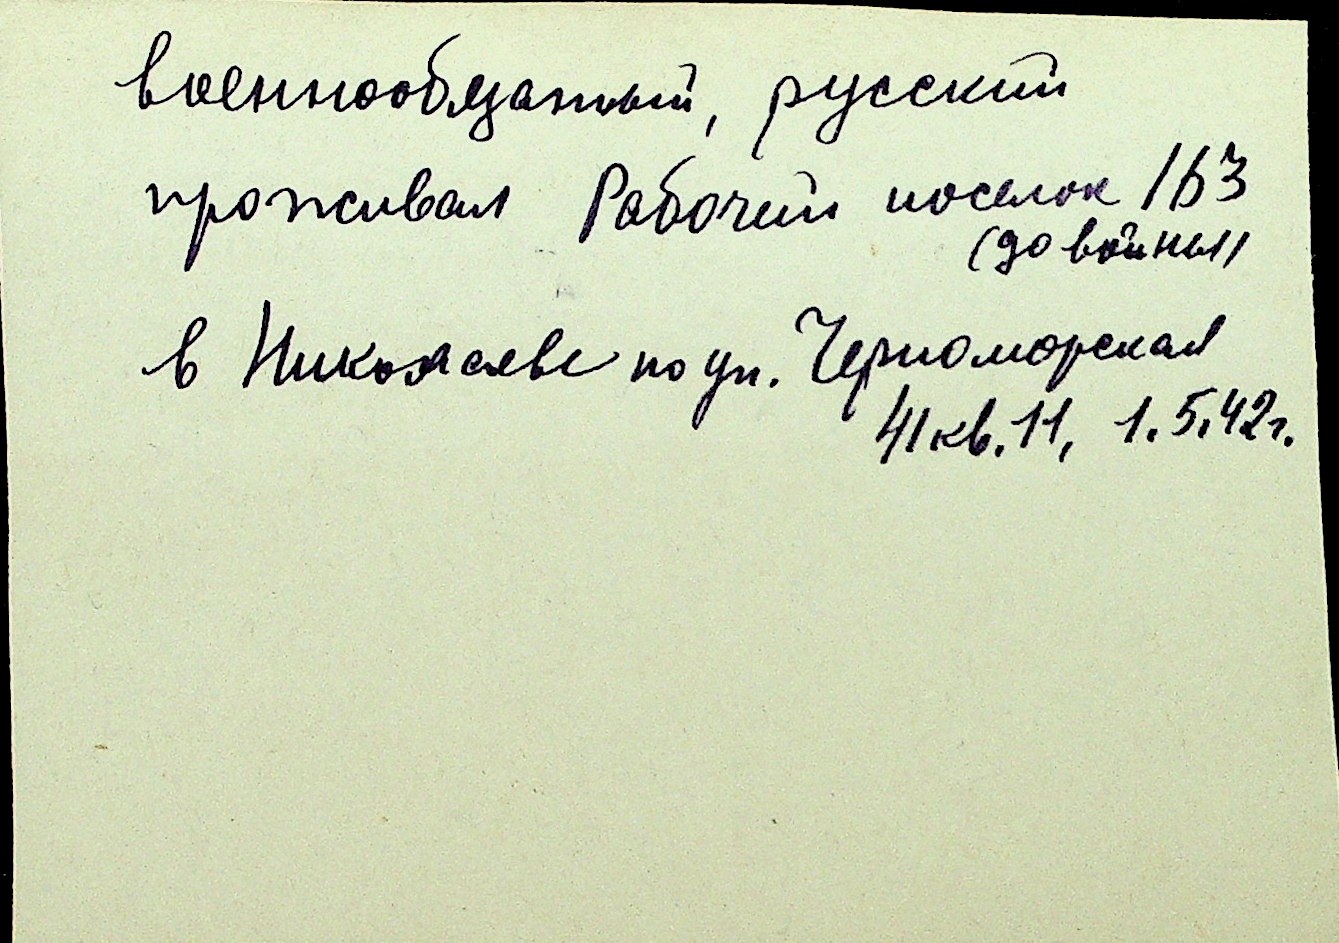 военнообязаный, русский
проживал Рабочий поселок 163
(до войны)
в Николаеве по ул. Черноморская
41 кв. 11, 1.5.42г.